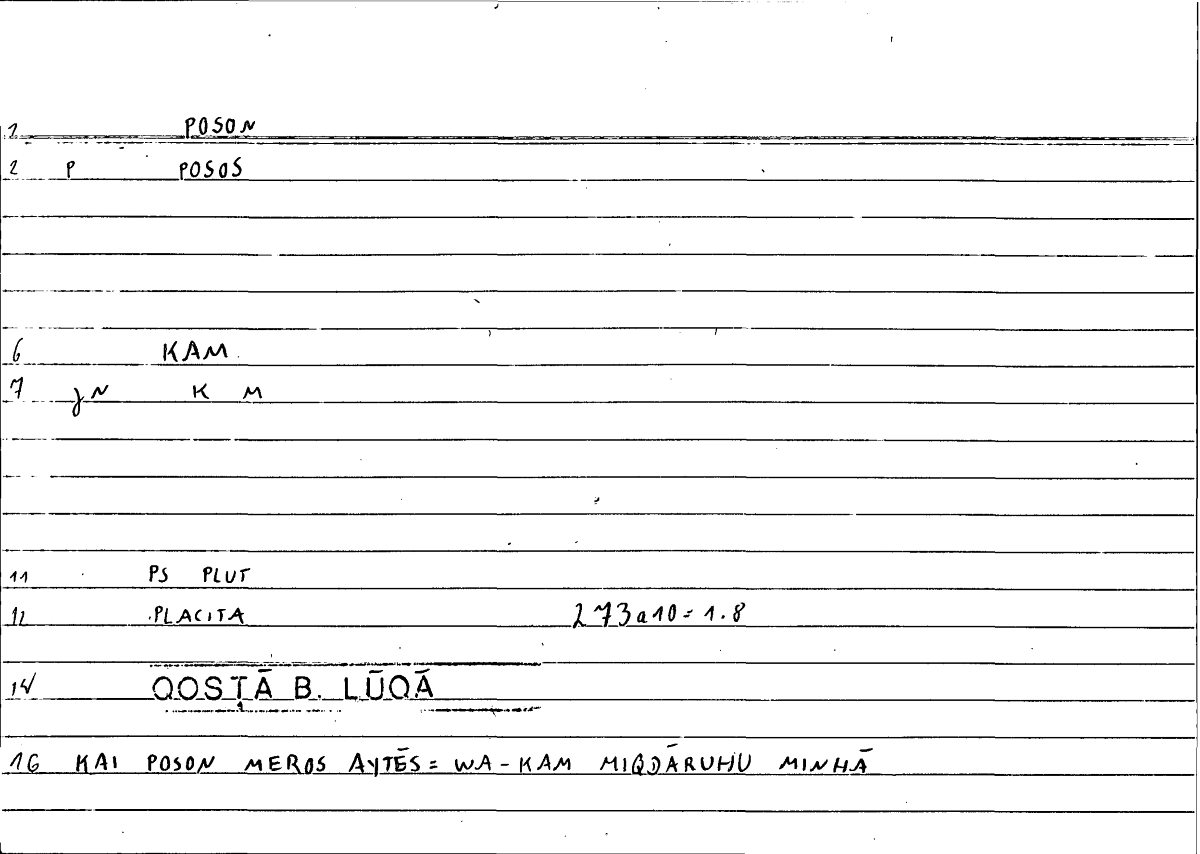 1 POSON
2 P POSOS
6 KAM
7 jN K M
11 PS PLUT
12 PLACITA 273a10=1.8
14 QOSṬĀ B. LŪQĀ
16 KAI POSON MEROS AYTĒS = WA-KAM MIQDĀRUHU MINHĀ